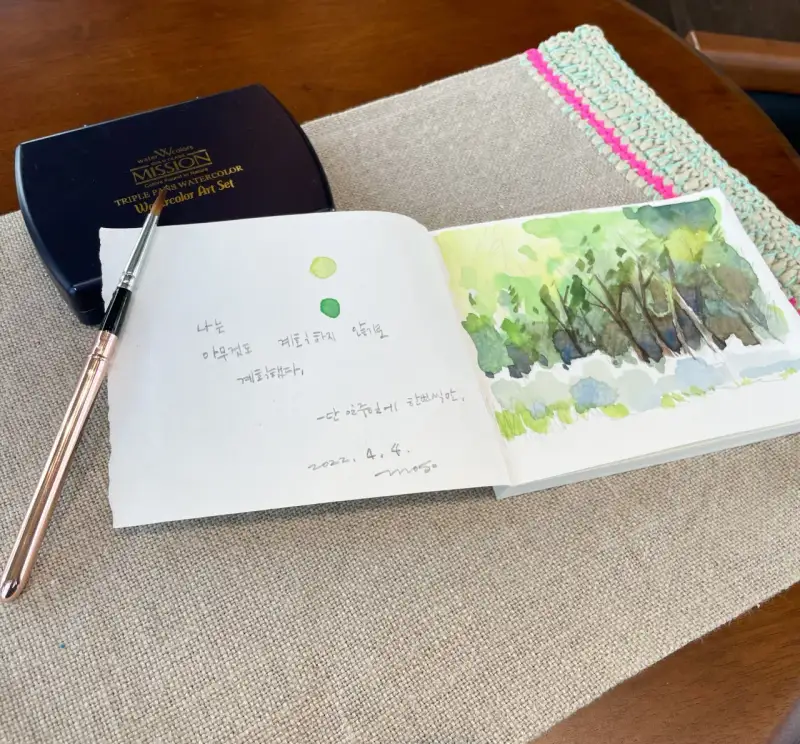 MISSION
TRIPLE PANS WATERCOLOR
Watercolor Art Set
나는
아무것도 계획하지 않기로
계획했다.
2022. 4. 8.